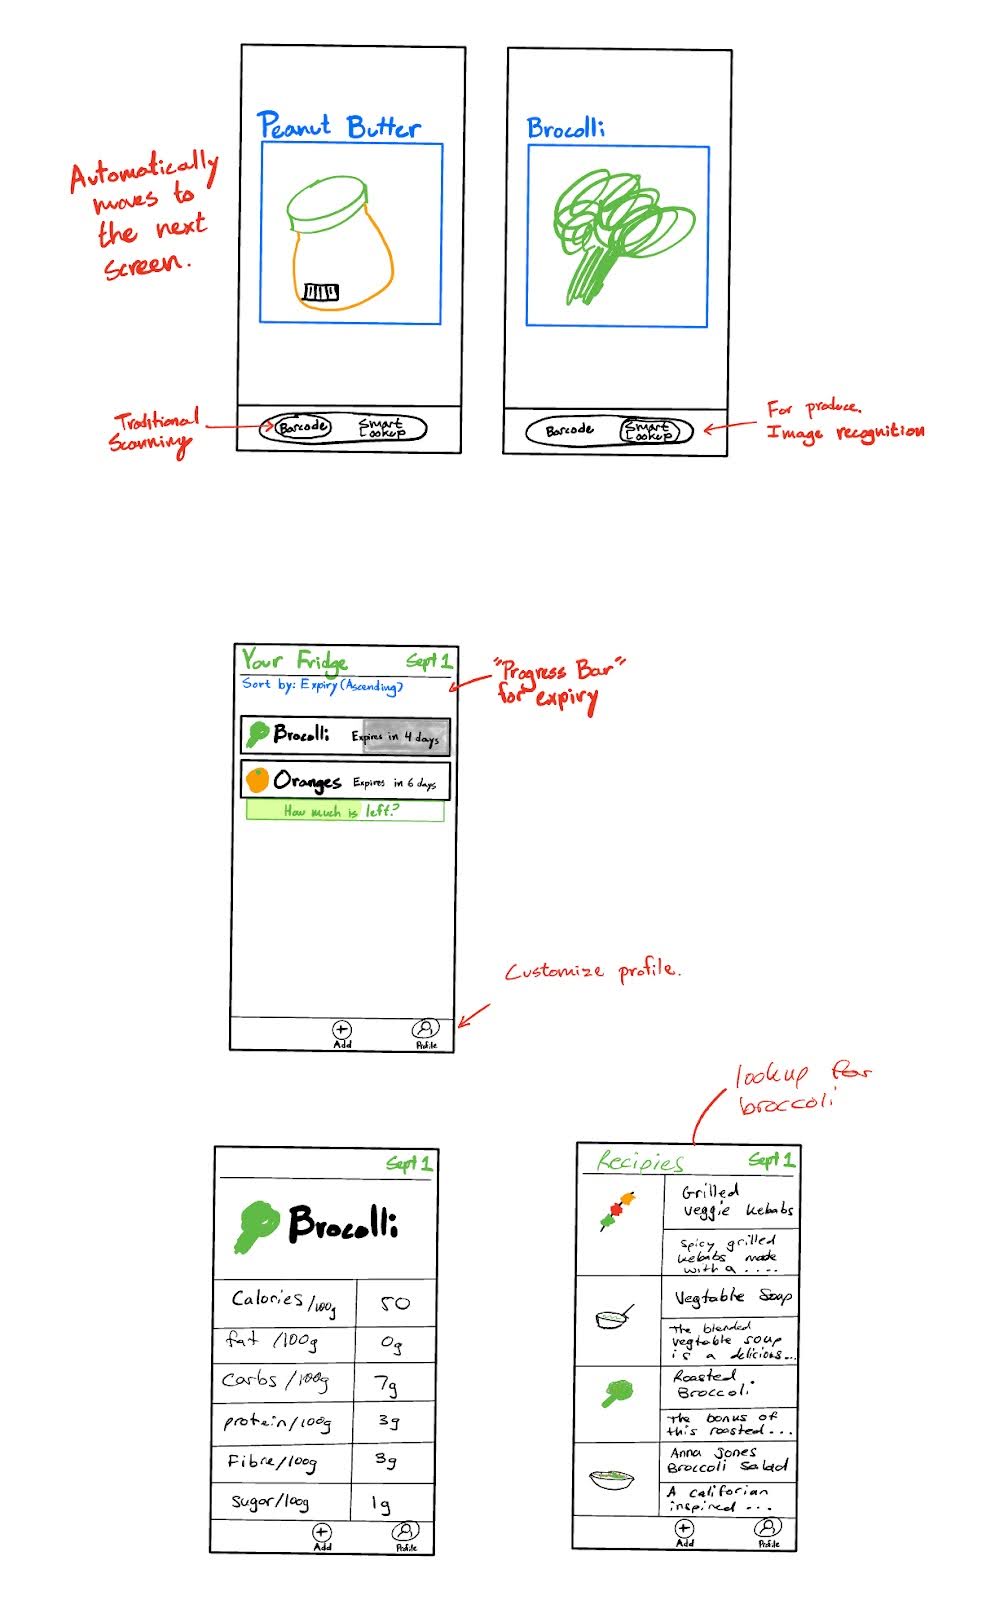 Peanut Butter
Brocolli
Automatically
moves to
the next
screen.
Traditional
Scanning
Barcode
Smart
Lookup
Barcode
Smart
Lookup
For produce.
Image recognition
Your Fridge
Sept 1
Sort by: Expiry (Ascending)
"Progress Bar"
for expiry
Brocolli
Expires in 4 days
Oranges
Expires in 6 days
How much is left?
Customize profile.
Add
Profile
lookup for
broccoli
Sept 1
Brocolli
Calories/100g
50
fat /100g
0g
Carbs /100g
7g
protein/100g
3g
Fibre/100g
3g
Sugar/100g
1g
Add
Profile
Recipies
Sept 1
Grilled
veggie kebabs
Spicy grilled
kebabs made
with a ....
Vegtable Soup
The blended
vegtable soup
is a delicious...
Roasted
Broccoli
The bonus of
this roasted...
Anna Jones
Broccoli Salad
A califorian
inspired ...
Add
Profile